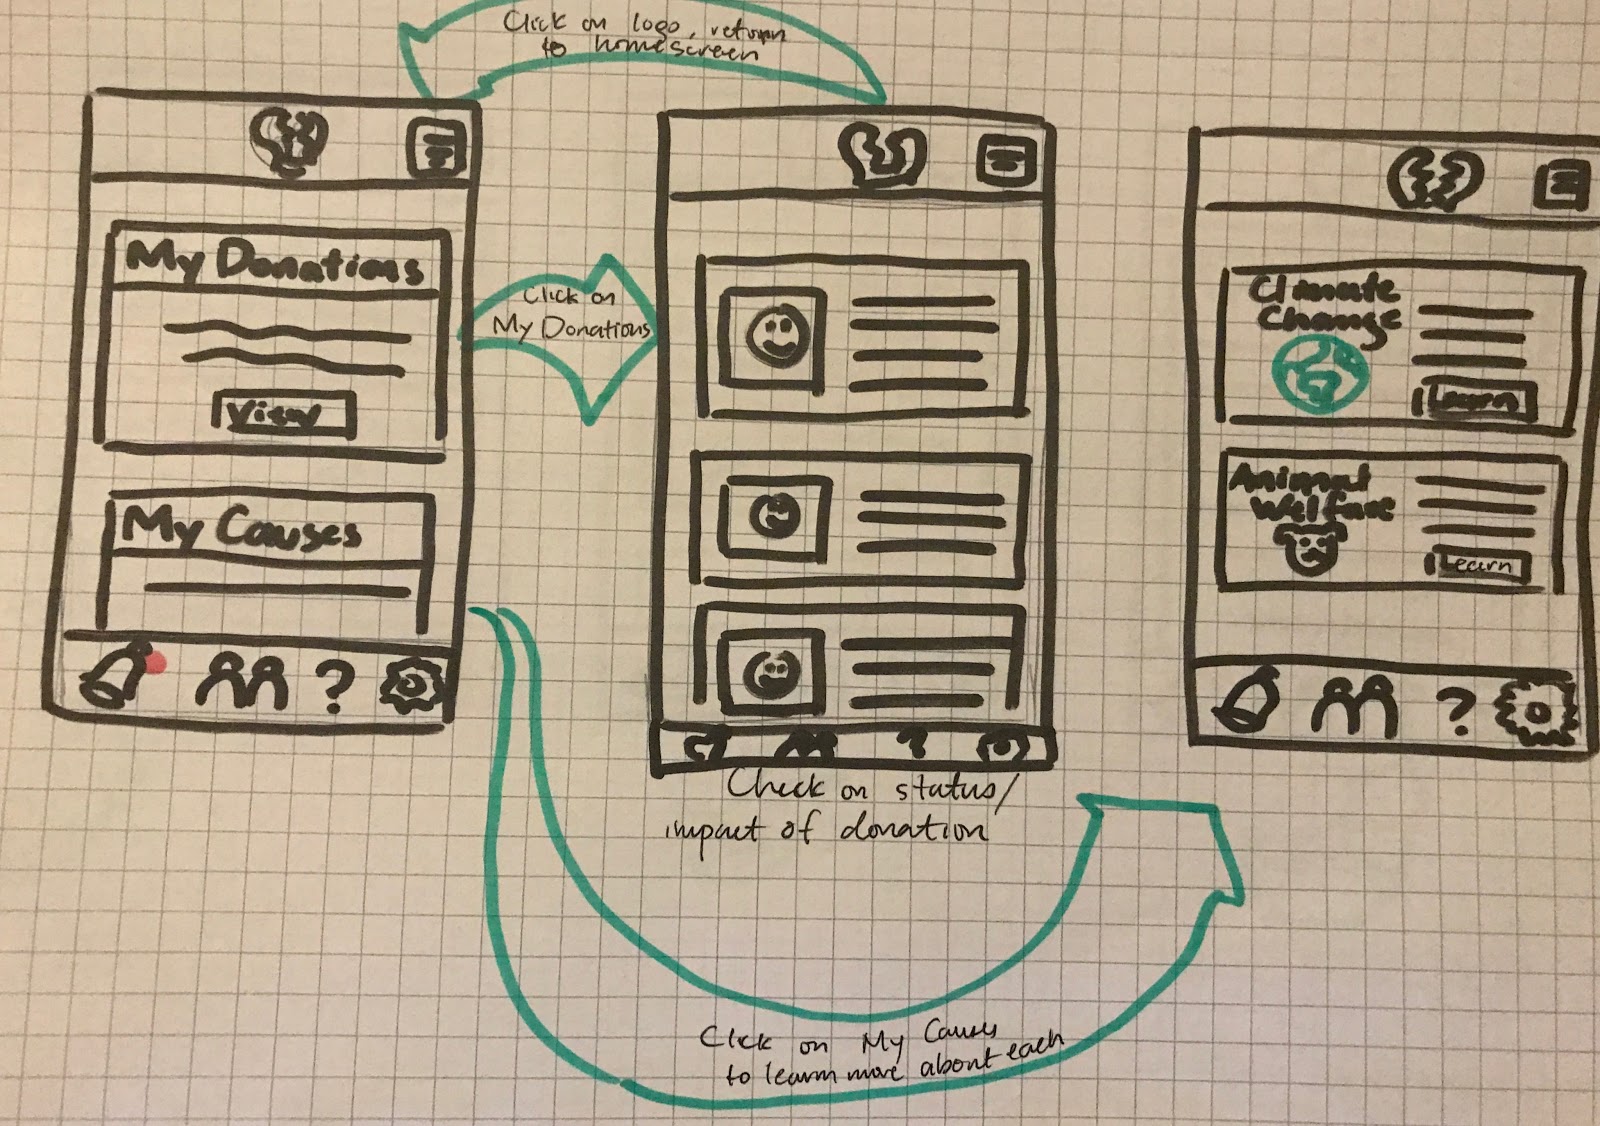 Click on logo, return
to homescreen
My Donations
View
My Causes
?
Click on
My Donations
?
Check on status/
impact of donation
Climate
Change
Learn
Animal
Welfare
Learn
?
Click on My Causes
to learn more about each